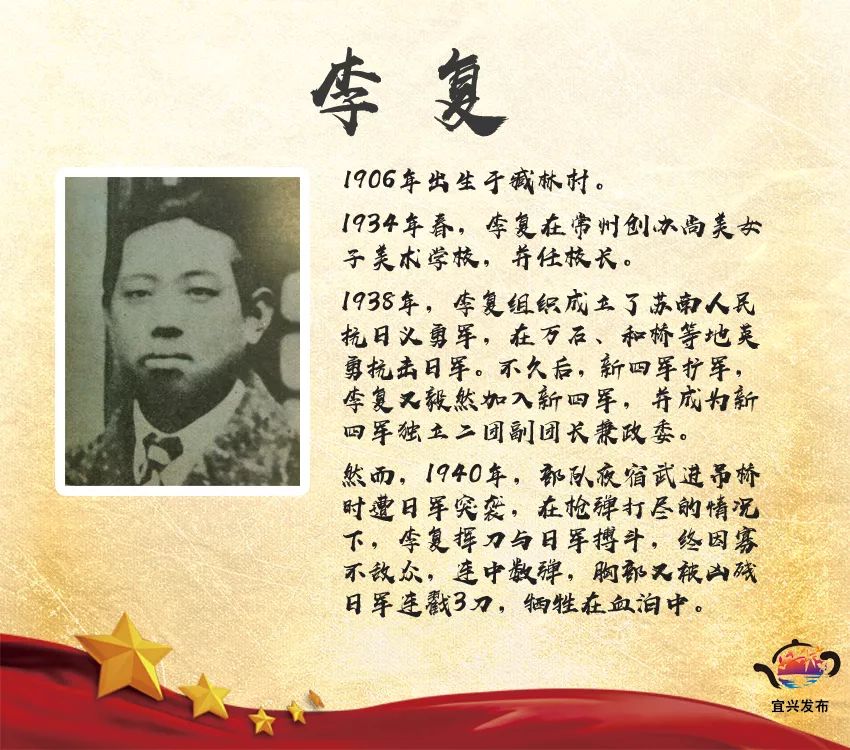 李复
1906年出生于臧林村。
1934年春，李复在常州创办尚美女
子美术学校，并任校长。
1938年，李复组织成立了苏南人民
抗日义勇军，在万石、和桥等地英
勇抗击日军。不久后，新四军扩军，
李复又毅然加入新四军，并成为新
四军独立二团副团长兼政委。
然而，1940年，部队夜宿武进吊桥
时遭日军突袭，在枪弹打尽的情况
下，李复挥刀与日军搏斗，终因寡
不敌众，连中数弹，胸部又被凶残
日军连戳3刀，牺牲在血泊中。
宜兴发布